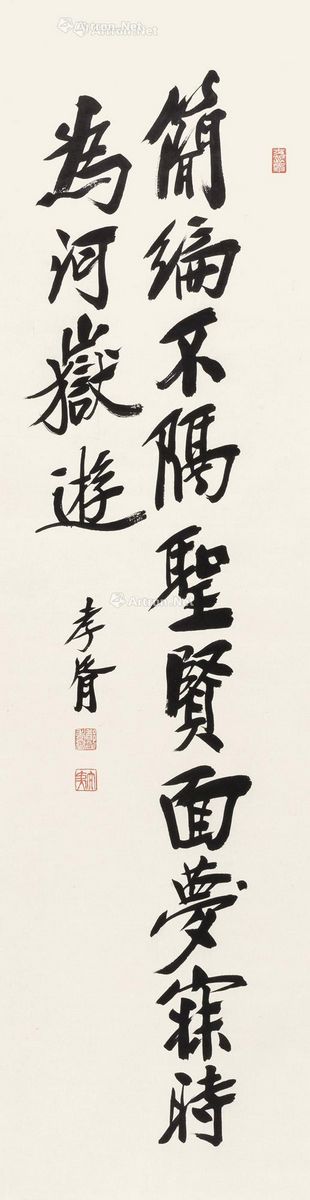 簡編不隔聖賢面夢寐時
為河嶽遊
孝胥
Artron.Net